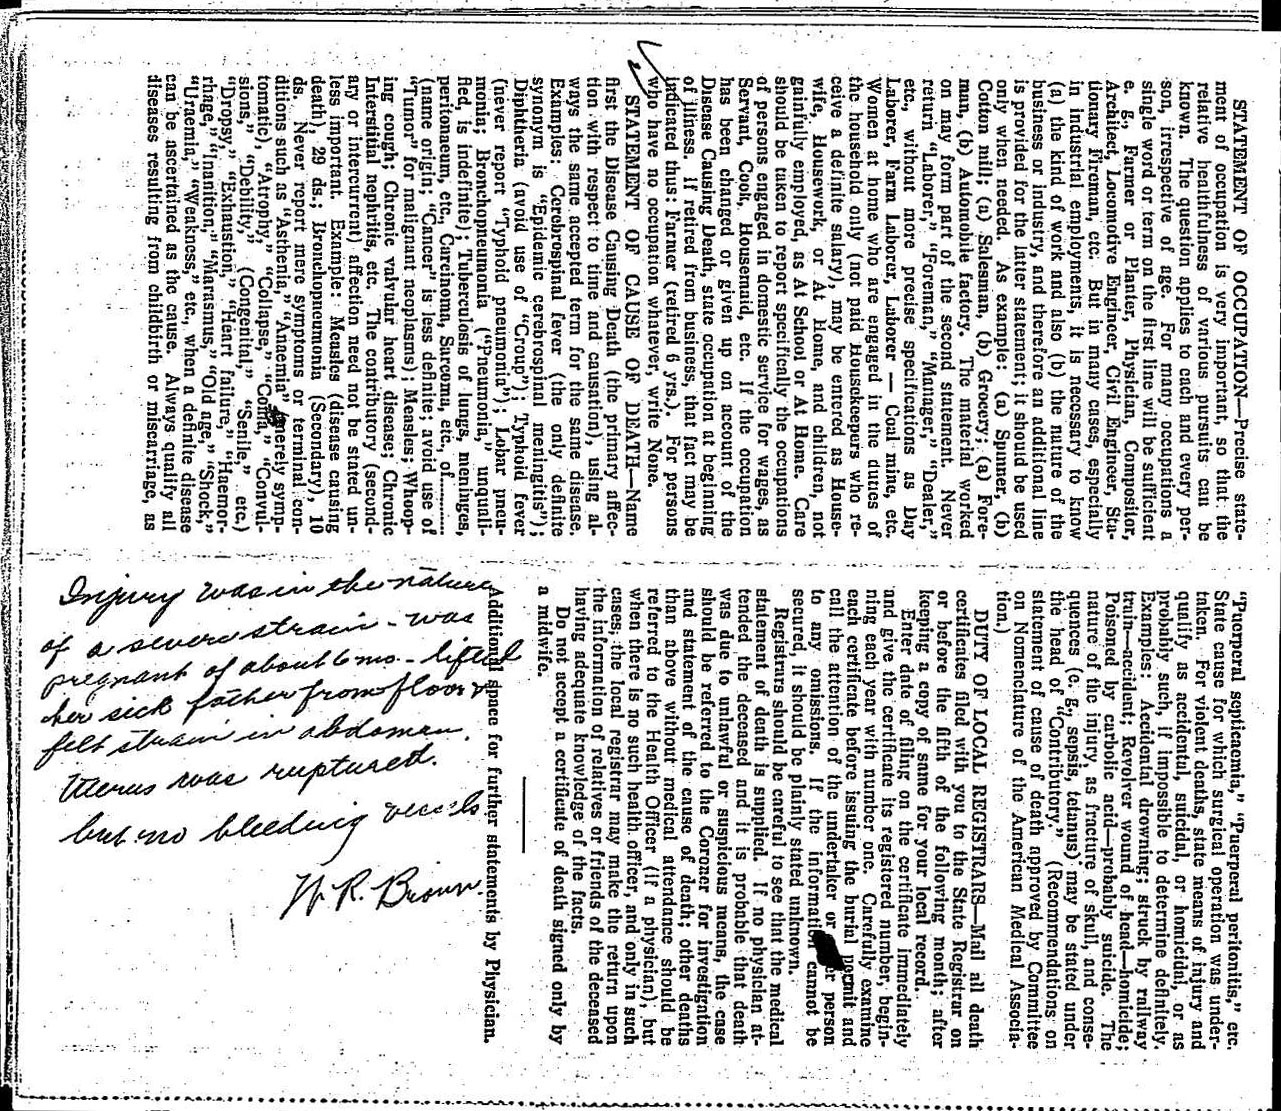 STATEMENT OF OCCUPATION—Precise state-
ment of occupation is very important, so that the
relative healthfulness of various pursuits can be
known. The question applies to each and every per-
son, irrespective of age. For many occupations a
single word or term on the first line will be sufficient
e. g., Farmer or Planter, Physician, Compositor,
Architect, Locomotive Engineer, Civil Engineer, Sta-
tionary Fireman, etc. But in many cases, especially
in industrial employments, it is necessary to know
(a) the kind of work and also (b) the nature of the
business or industry, and therefore an additional line
is provided for the latter statement; it should be used
only when needed. As example: (a) Spinner, (b)
Cotton mill; (a) Salesman, (b) Grocery; (a) Fore-
man, (b) Automobile factory. The material worked
on may form part of the second statement. Never
return "Laborer," "Foreman," "Manager," "Dealer,"
etc., without more precise specifications as Day
Laborer, Farm Laborer, Laborer — Coal mine, etc.
Women at home who are engaged in the duties of
the household only (not paid Housekeepers who re-
ceive a definite salary), may be entered as House-
wife, Housework, or At Home, and children, not
gainfully employed, as At School or At Home. Care
should be taken to report specifically the occupations
of persons engaged in domestic service for wages, as
Servant, Cook, Housemaid, etc. If the occupation
has been changed or given up on account of the
Disease Causing Death, state occupation at beginning
of illness. If retired from business, that fact may be
indicated thus: Farmer (retired 6 yrs.). For persons
who have no occupation whatever, write None.
STATEMENT OF CAUSE OF DEATH—Name
first the Disease Causing Death (the primary affec-
tion with respect to time and causation), using al-
ways the same accepted term for the same disease.
Examples: Cerebrospinal fever (the only definite
synonym is "Epidemic cerebrospinal meningitis");
Diphtheria (avoid use of "Croup"); Typhoid fever
(never report "Typhoid pneumonia"); Lobar pneu-
monia; Bronchopneumonia ("Pneumonia," unquali-
fied, is indefinite); Tuberculosis of lungs, meninges,
peritonaeum, etc., Carcinoma, Sarcoma, etc., of..........
(name origin; "Cancer" is less definite; avoid use of
"Tumor" for malignant neoplasms); Measles; Whoop-
ing cough; Chronic valvular heart disease; Chronic
Interstitial nephritis, etc. The contributory (second-
ary or intercurrent) affection need not be stated un-
less important. Example: Measles (disease causing
death), 29 ds., Bronchopneumonia (Secondary), 10
ds. Never report mere symptoms or terminal con-
ditions such as "Asthenia," "Anaemia" merely symp-
tomatic), "Atrophy," "Collapse," "Coma," "Convul-
sions," "Debility," (Congenital," "Senile," etc.)
"Dropsy," "Exhaustion," "Heart failure," "Haemor-
rhage," "Inanition," "Marasmus," "Old age," "Shock,"
"Uraemia," "Weakness," etc., when a definite disease
can be ascertained as the cause. Always qualify all
diseases resulting from childbirth or miscarriage, as
"Puerperal septicaemia," "Puerperal peritonitis," etc.
State cause for which surgical operation was under-
taken. For violent deaths, state means of injury and
qualify as accidental, suicidal, or homicidal, or as
probably such, if impossible to determine definitely.
Examples: Accidental drowning; struck by railway
train—accident; Revolver wound of head—homicide;
Poisoned by carbolic acid—probably suicide. The
nature of the injury, as fracture of skull, and conse-
quences (e. g., sepsis, tetanus) may be stated under
the head of "Contributory." (Recommendations on
statement of cause of death approved by Committee
on Nomenclature of the American Medical Associa-
tion.)
DUTY OF LOCAL REGISTRARS—Mail all death
certificates filed with you to the State Registrar on
or before the fifth of the following month; after
keeping a copy of same for your local record.
Enter date of filing on the certificate immediately
and give the certificate its registered number, begin-
ning each year with number one. Carefully examine
each certificate before issuing the burial permit and
call the attention of the undertaker or person
to any omissions. If the information cannot be
secured, it should be plainly stated unknown.
Registrars should be careful to see that the medical
statement of death is supplied. If no physician at-
tended the deceased and it is probable that death
was due to unlawful or suspicious means, the case
should be referred to the Coroner for investigation
and statement of the cause of death; other deaths
than above without medical attendance should be
referred to the Health Officer (if a physician); but
when there is no such health officer, and only in such
cases the local registrar may make the return upon
the information of relatives or friends of the deceased
having adequate knowledge of the facts.
Do not accept a certificate of death signed only by
a midwife.
Additional space for further statements by Physician.
Injury was in the nature
of a severe strain - was
pregnant of about 6 mo. - lifted
her sick father from floor &
felt strain in abdomen.
Uterus was ruptured.
but no bleeding vessels
W. R. Brown.